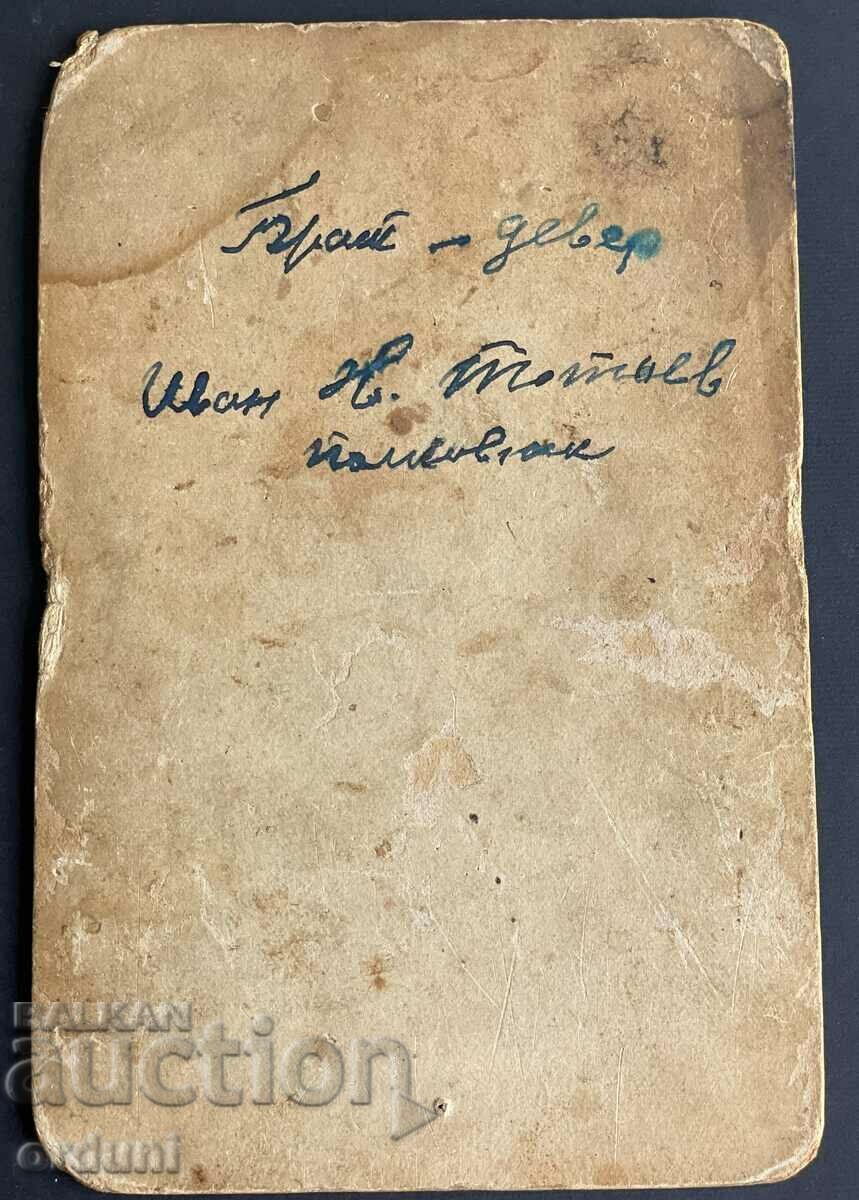 Брат - девер
Иван Н. Тотьев
полковник
BALKAN
auction
orduni